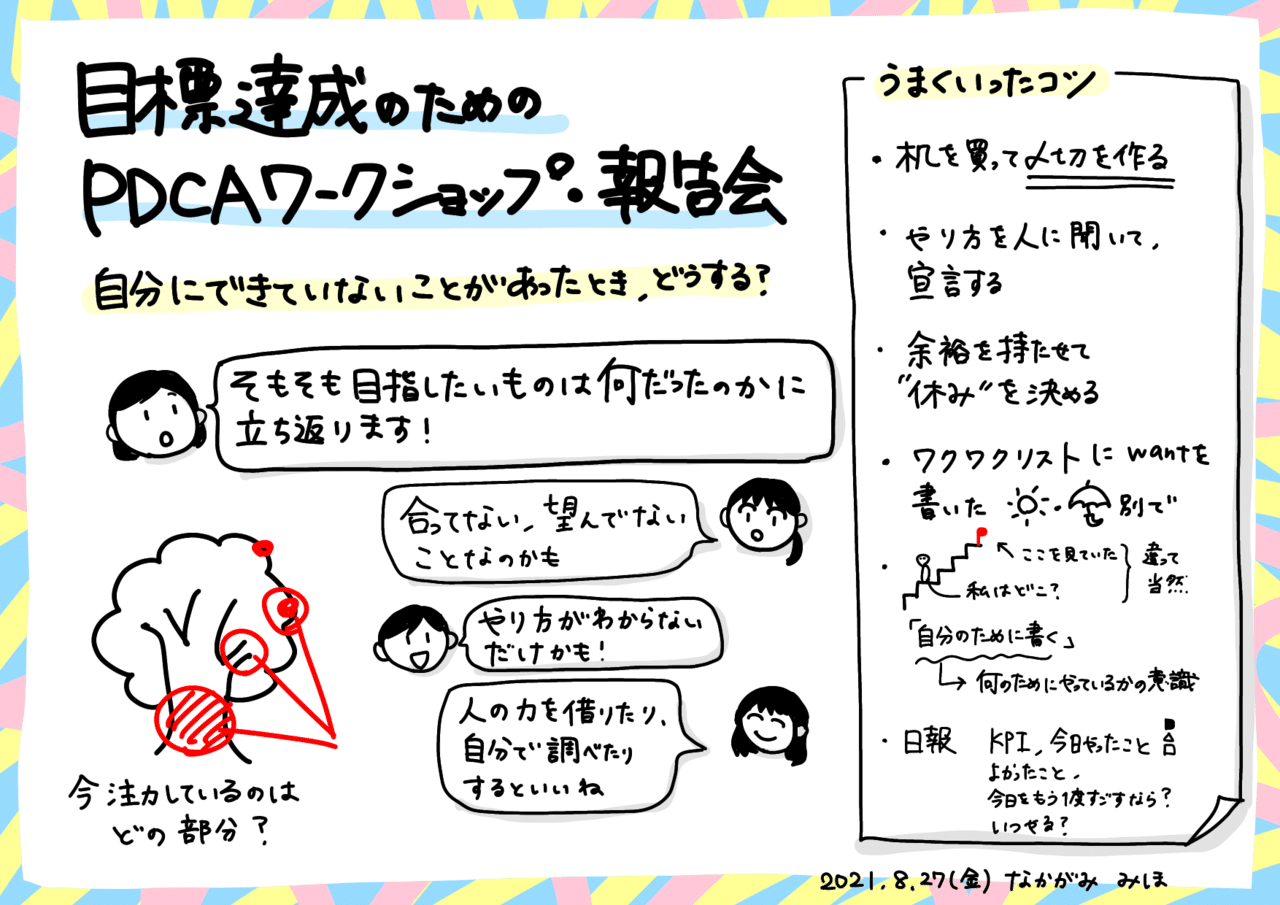 目標達成のための
PDCAワークショップ・報告会
自分にできていないことがあったとき、どうする?
そもそも目指したいものは何だったのかに
立ち返ります!
合ってない、望んでない
ことなのかも
やり方がわからない
だけかも!
人の力を借りたり、
自分で調べたり
するといいね
今注力しているのは
どの部分?
うまくいったコツ
・机を買って〆切を作る
・やり方を人に聞いて、
宣言する
・余裕を持たせて
"休み"を決める
・ワクワクリストにwantを
書いた ・別で
・
ここを見ていた
私はどこ?
違って
当然
「自分のために書く」
何のためにやっているかの意識
・日報 KPI、今日やったこと
よかったこと、
今日をもう1度すごすなら?
いつやる?
2021.8.27(金) なかがみ みほ